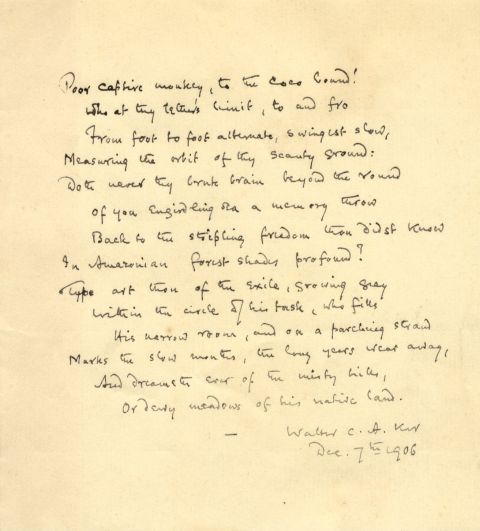 Poor captive monkey, to the coco bound!
Who at thy tether's limit, to and fro
From foot to foot alternate, swingest slow,
Measuring the orbit of thy scanty ground:
Doth never thy brute brain beyond the round
of yon engirdling sea a memory throw
Back to the stripling freedom thou didst know
In Amazonian forest shades profound?
Type art thou of the Exile, growing gray
Within the circle of his task, who fills
His narrow room, and on a parching strand
Marks the slow months, the long years wear away,
And dreameth ever of the misty hills,
Or dewy meadows of his native land.
—
Walter C. A. Ker
Dec. 7th 1906